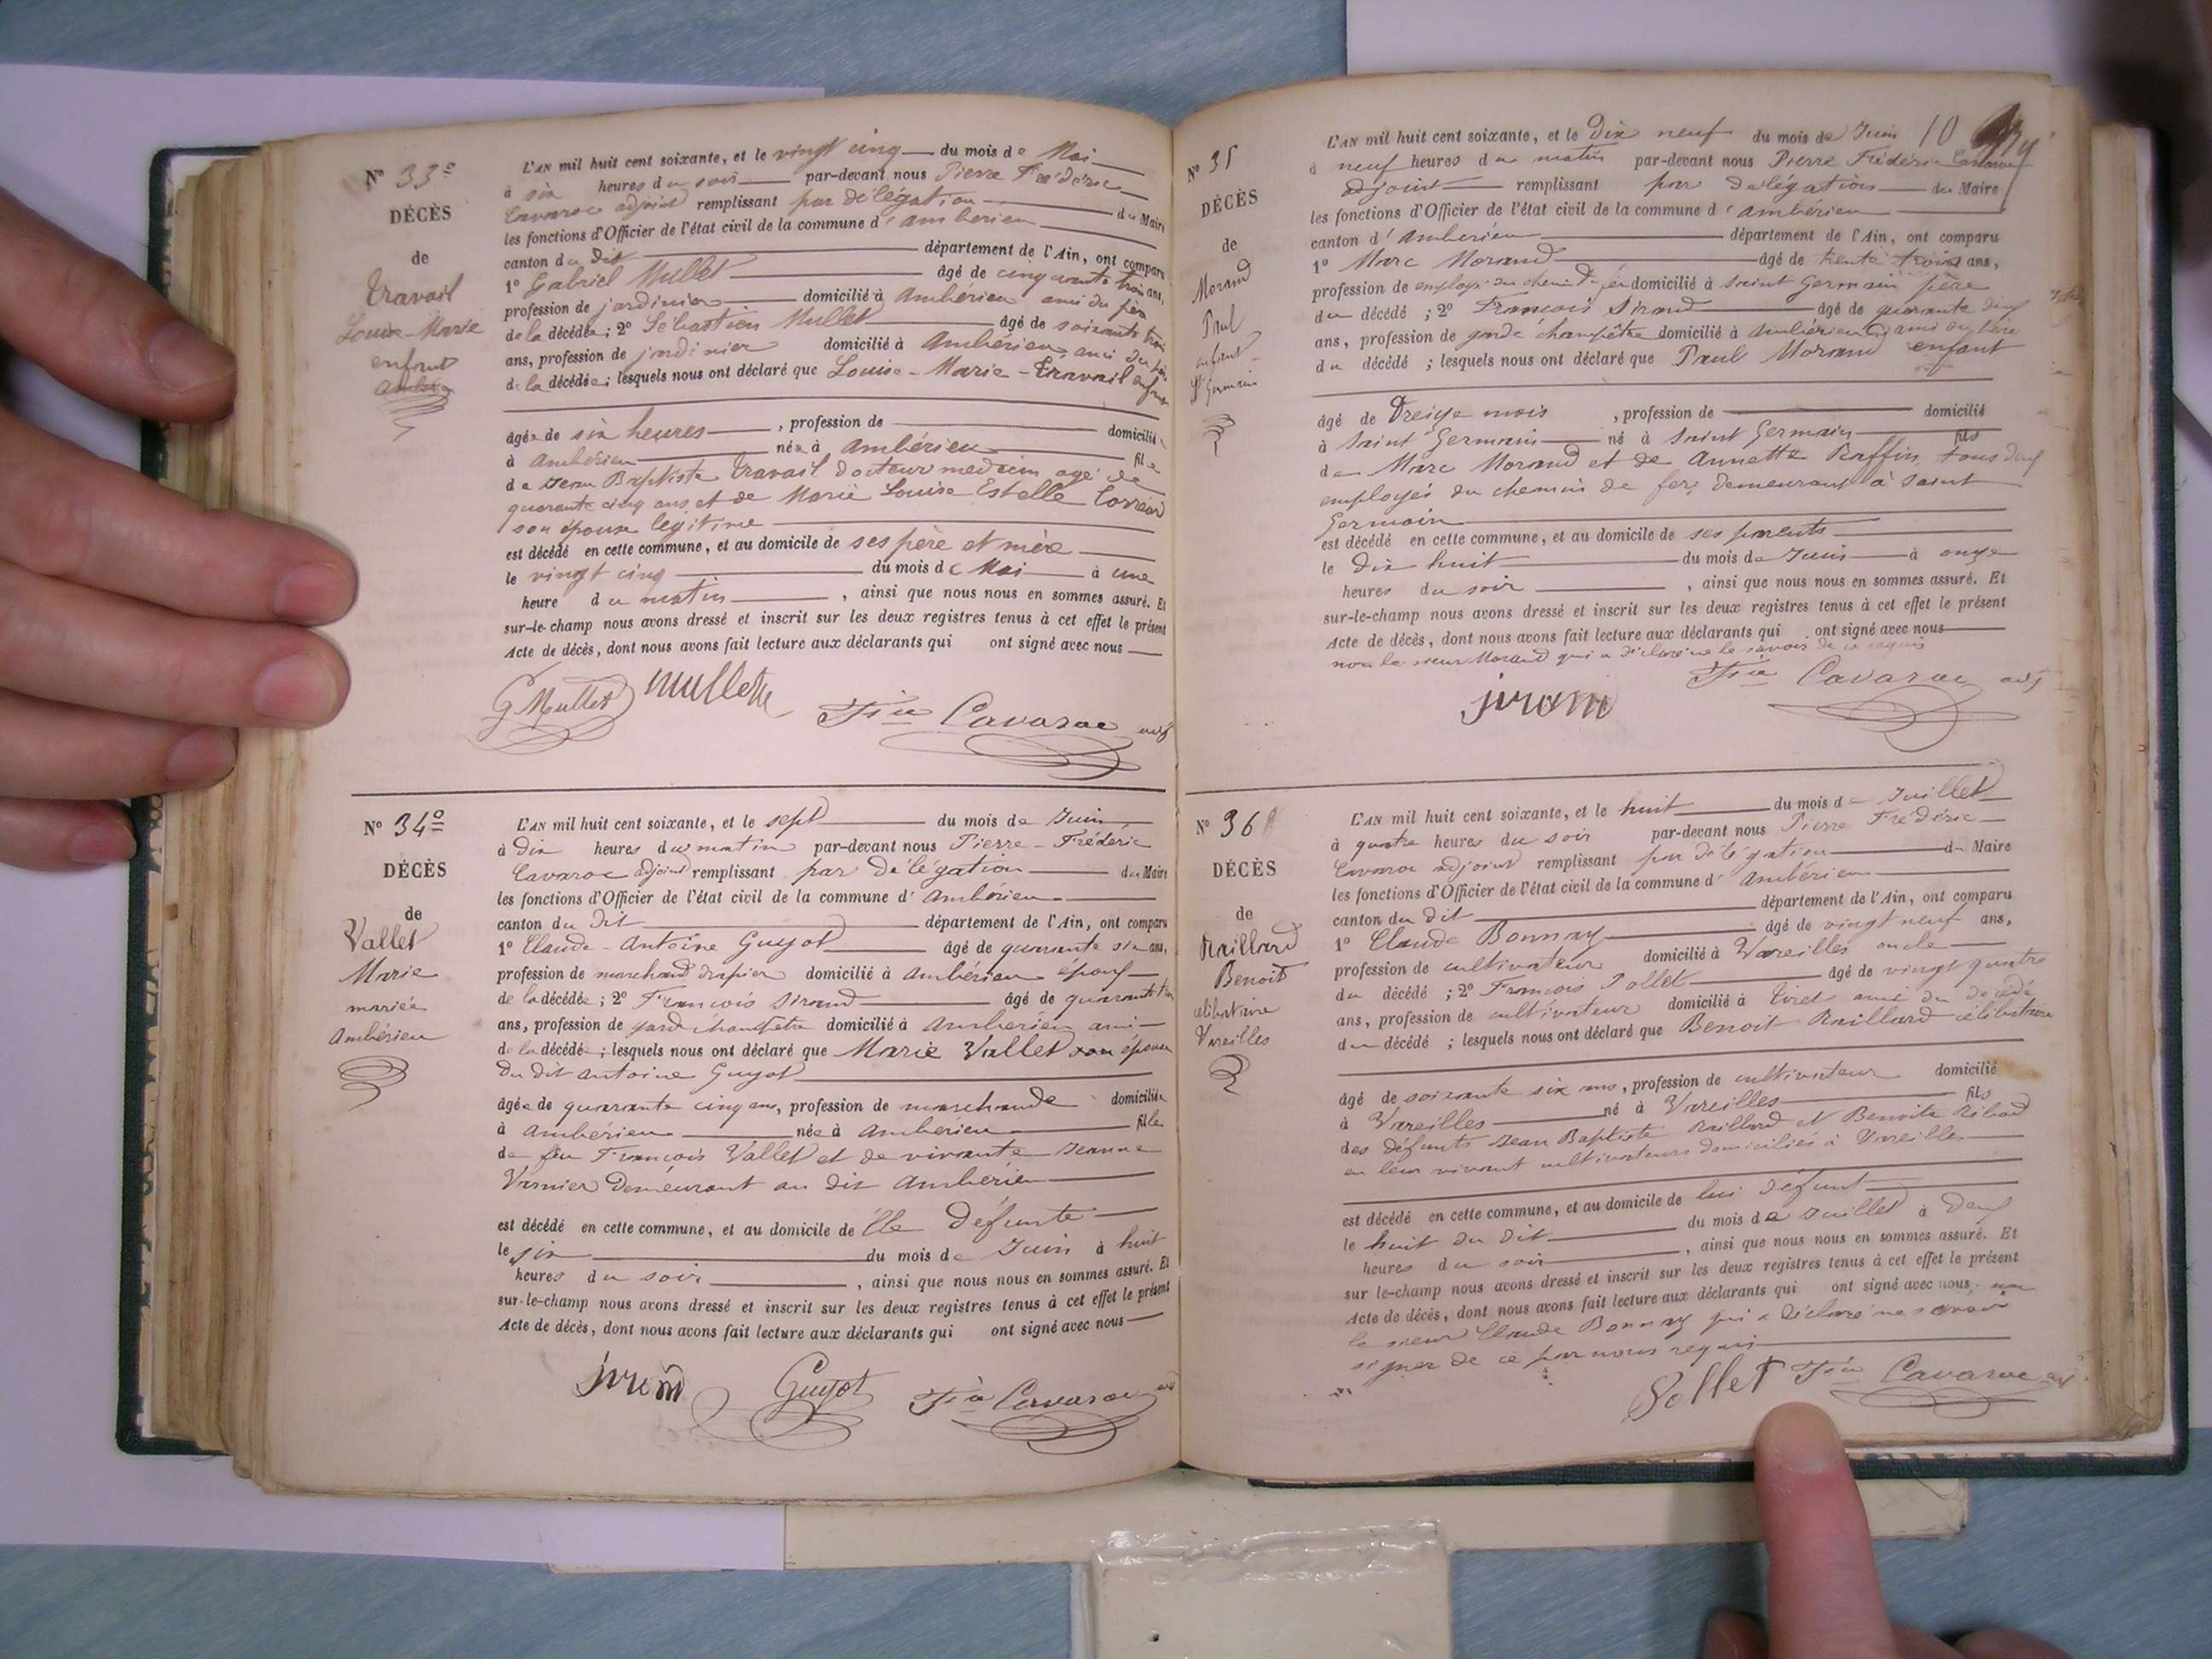 Nº 33º
DÉCÈS
de
Travail
Louise-Marie
enfant
L'AN mil huit cent soixante, et le vingt cinq du mois de Mai
à six heures du soir par-devant nous Pierre Frédéric
Cavaroc adjoint remplissant par délégation du Maire
les fonctions d'Officier de l'état civil de la commune d'Ambérieu
canton du dit département de l'Ain, ont comparu
1º Gabriel Mullet âgé de cinquante trois ans,
profession de jardinier domicilié à Ambérieu ami du père
de la décédée; 2º Sébastien Mullet âgé de soixante trois
ans, profession de jardinier domicilié à Ambérieu, ami du père
de la décédée; lesquels nous ont déclaré que Louise-Marie-Travail enfant
âgée de six heures, profession de domiciliée
à Ambérieu née à Ambérieu fille
de Jean Baptiste Travail docteur medecin agé de
quarante cinq ans, et de Marie Louise Estelle
son épouse légitime
est décédé en cette commune, et au domicile de ses père et mère
le vingt cinq du mois de Mai à une
heure du matin, ainsi que nous nous en sommes assuré. Et
sur-le-champ nous avons dressé et inscrit sur les deux registres tenus à cet effet le présent
Acte de décès, dont nous avons fait lecture aux déclarants qui ont signé avec nous
G Mullet mullet Fric Cavaroc adj
Nº 34º
DÉCÈS
de
Vallet
Marie
mariée
Ambérieu
L'AN mil huit cent soixante, et le sept du mois de Juin
à dix heures du matin par-devant nous Pierre-Frédéric
Cavaroc adjoint remplissant par délégation du Maire
les fonctions d'Officier de l'état civil de la commune d'Ambérieu
canton du dit département de l'Ain, ont comparu
1º Claude-Antoine Guyot âgé de quarante six ans,
profession de marchand drapier domicilié à Ambérieu époux
de la décédée; 2º François Sirand âgé de quarante
ans, profession de garde champêtre domicilié à Ambérieu ami
de la décédé; lesquels nous ont déclaré que Marie Vallet son épouse
du dit antoine Guyot
âgée de quarante cinq ans, profession de marchande domiciliée
à Ambérieu née à Ambérieu fille
de feu François Vallet et de vivante Jeanne
Varnier demeurant au dit Ambérieu
est décédé en cette commune, et au domicile de elle défunte
le six du mois de Juin à huit
heures du soir, ainsi que nous nous en sommes assuré. Et
sur-le-champ nous avons dressé et inscrit sur les deux registres tenus à cet effet le présent
Acte de décès, dont nous avons fait lecture aux déclarants qui ont signé avec nous
sirand Guyot Fric Cavaroc adj
10
Nº 35
DÉCÈS
de
Morand
Paul
enfant
St Germain
L'AN mil huit cent soixante, et le Dix neuf du mois de Juin
à neuf heures du matin par-devant nous Pierre Frédéric Cavaroc
adjoint remplissant par délégation du Maire
les fonctions d'Officier de l'état civil de la commune d'Ambérieu
canton d'Ambérieu département de l'Ain, ont comparu
1º Marc Morand âgé de trente trois ans,
profession de employé du chemin de fer domicilié à Saint Germain père
du décédé; 2º François Sirand âgé de quarante
ans, profession de garde champêtre domicilié à Ambérieu ami du père
du décédé; lesquels nous ont déclaré que Paul Morand enfant
âgé de Treize mois, profession de domicilié
à Saint Germain né à Saint Germain fils
de Marc Morand et de Annette Raffin, tous deux
employés du chemin de fer, demeurant à Saint
Germain
est décédé en cette commune, et au domicile de ses parents
le dix huit du mois de Juin à onze
heures du soir, ainsi que nous nous en sommes assuré. Et
sur-le-champ nous avons dressé et inscrit sur les deux registres tenus à cet effet le présent
Acte de décès, dont nous avons fait lecture aux déclarants qui ont signé avec nous
non le sieur Morand qui a déclaré ne le savoir de ce requis
sirand Fric Cavaroc adj
Nº 36
DÉCÈS
de
Raillard
Benoit
célibataire
Vareilles
L'AN mil huit cent soixante, et le huit du mois de Juillet
à quatre heures du soir par-devant nous Pierre Frédéric
Cavaroc adjoint remplissant par délégation du Maire
les fonctions d'Officier de l'état civil de la commune d'Ambérieu
canton du dit département de l'Ain, ont comparu
1º Claude Bonnay âgé de vingt neuf ans,
profession de cultivateur domicilié à Vareilles oncle
du décédé; 2º François Pollet âgé de vingt quatre
ans, profession de cultivateur domicilié à Tiret ami du décédé
du décédé; lesquels nous ont déclaré que Benoit Raillard célibataire
âgé de soixante six ans, profession de cultivateur domicilié
à Vareilles né à Vareilles fils
des défunts Jean Baptiste Raillard et Benoite Ribod
en leur vivant cultivateurs domiciliés à Vareilles
est décédé en cette commune, et au domicile de lui défunt
le huit du dit du mois de Juillet à deux
heures du soir, ainsi que nous nous en sommes assuré. Et
sur le-champ nous avons dressé et inscrit sur les deux registres tenus à cet effet le présent
Acte de décès, dont nous avons fait lecture aux déclarants qui ont signé avec nous, non
le sieur Claude Bonnay qui a déclaré ne savoir
signer de ce par nous requis
Pollet Fric Cavaroc adj